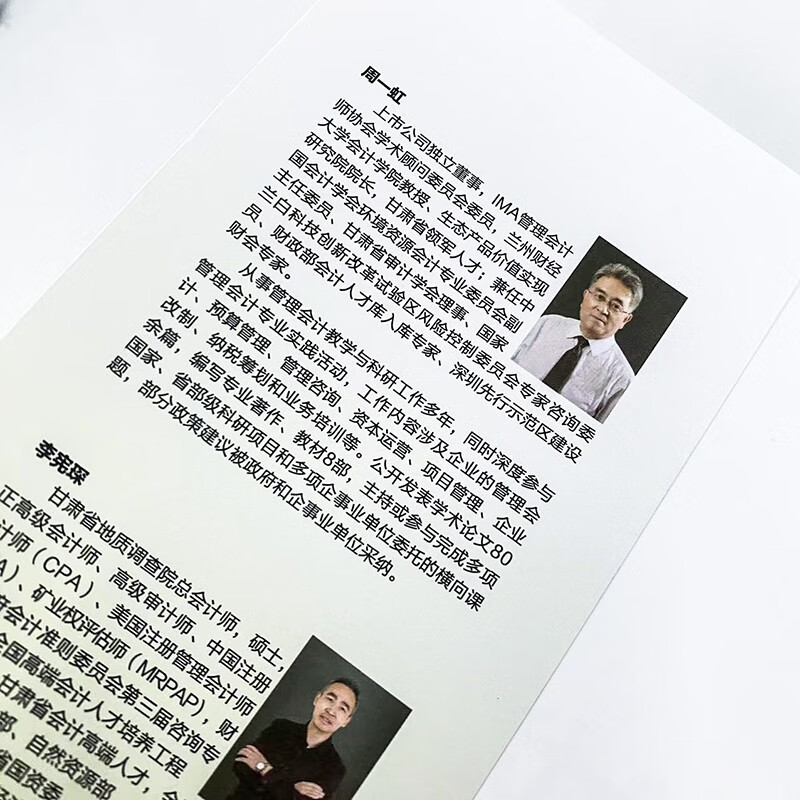 周一虹
上市公司独立董事，IMA管理会计
师协会学术顾问委员会委员，兰州财经
大学会计学院教授、生态产品价值实现
研究院院长，甘肃省领军人才；兼任中
国会计学会环境资源会计专业委员会副
主任委员、甘肃省审计学会理事、国家
兰白科技创新改革试验区风险控制委员会专家咨询委
员、财政部会计人才库入库专家、深圳先行示范区建设
财会专家。
从事管理会计教学与科研工作多年，同时深度参与
管理会计专业实践活动，工作内容涉及企业的管理会
计、预算管理、管理咨询、资本运营、项目管理、企业
改制、纳税筹划和业务培训等。公开发表学术论文80
余篇，编写专业著作、教材8部，主持或参与完成多项
国家、省部级科研项目和多项企事业单位委托的横向课
题，部分政策建议被政府和企事业单位采纳。
李宪琛
甘肃省地质调查院总会计师，硕士，
正高级会计师、高级审计师、中国注册
计师（CPA）、美国注册管理会计师
A）、矿业权评估师（MRPAP），财
府会计准则委员会第三届咨询专
全国高端会计人才培养工程
甘肃省会计高端人才，
部、自然资源部
省国资委